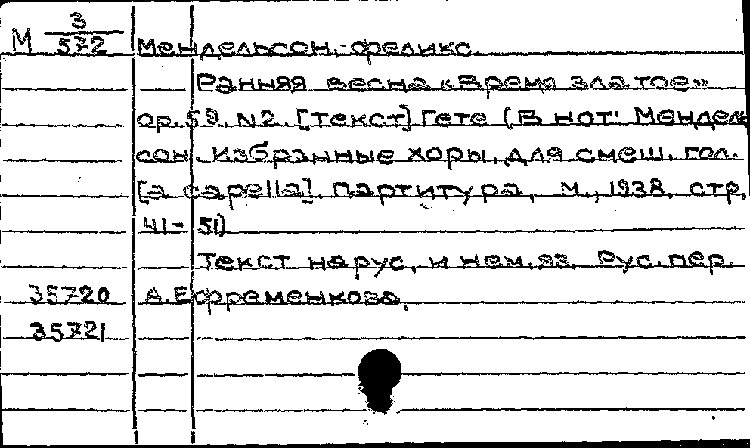 М 3/572 Мендельсон, Феликс.
Ранняя весна «Время златое»
ор. 59. N2. [Текст] Гете (В нот: Мендель
сон. Избранные хоры. Для смеш. гол.
[a capella]. Партитура, М., 1938. стр.
41-51)
Текст на рус. и нем. яз. Рус. пер.
35720 А. Ефременкова.
35721